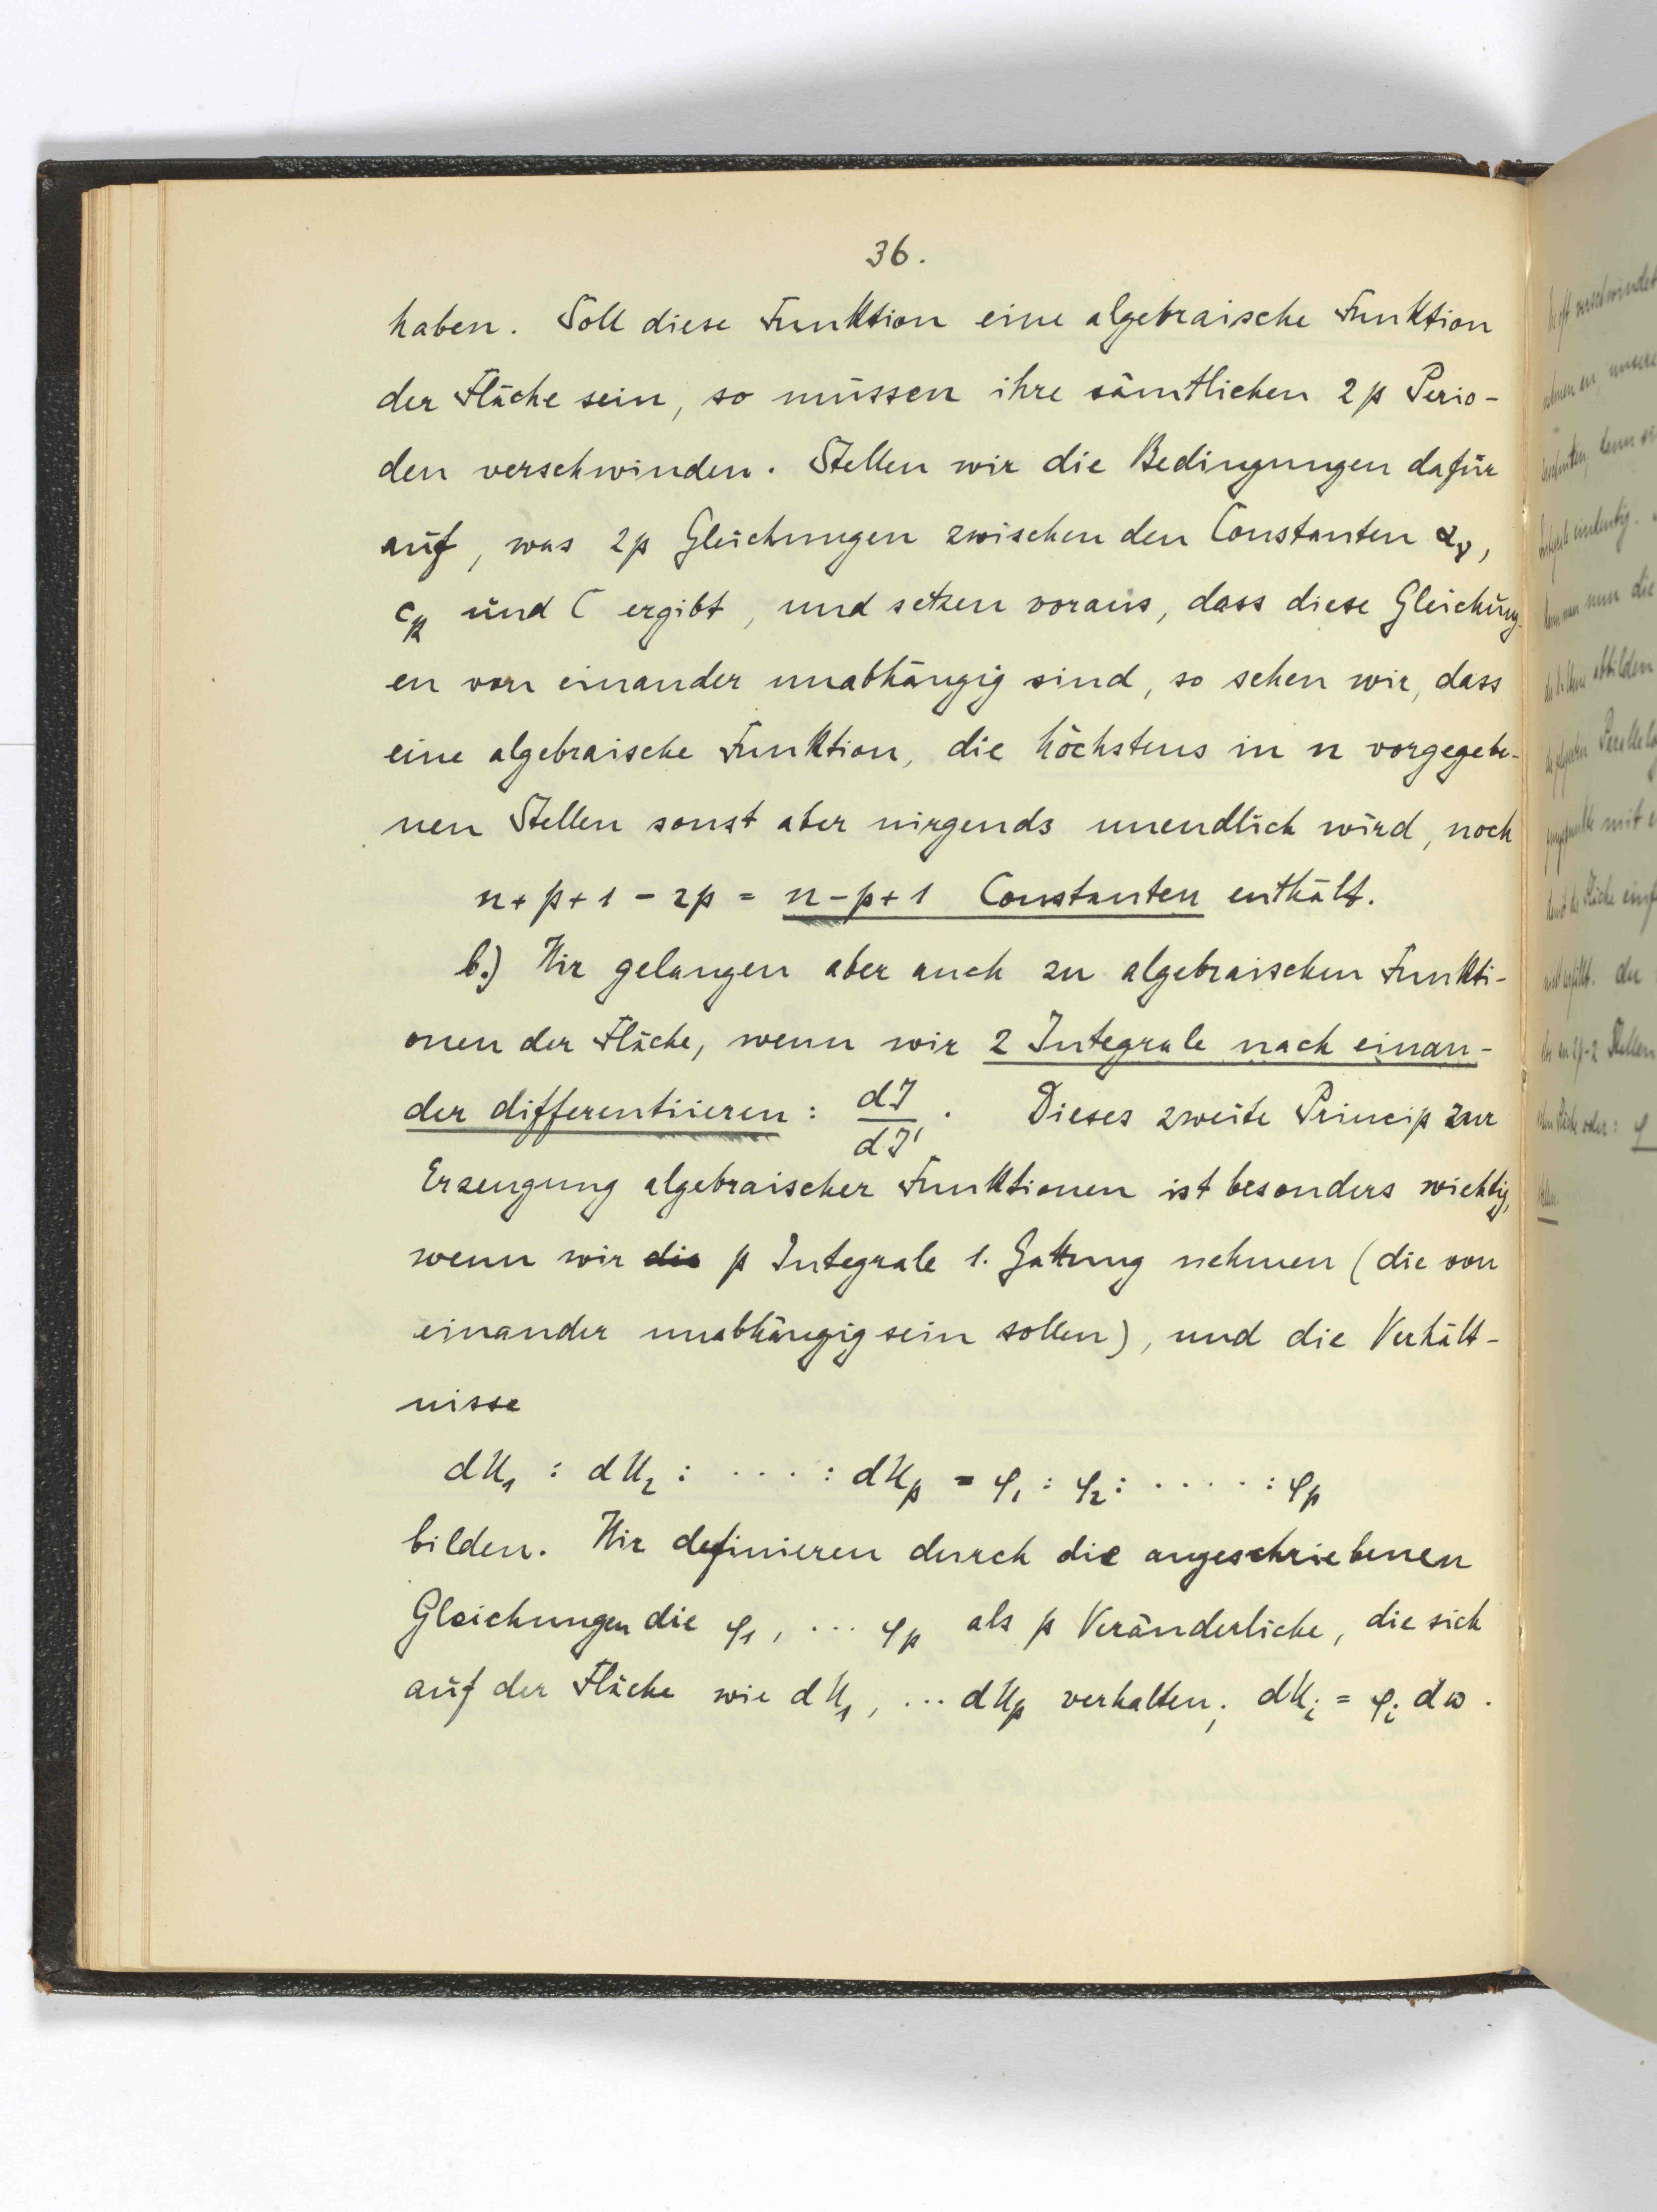 36.
haben. Soll diese Funktion eine algebraische Funktion
der Fläche sein, so müssen ihre sämtlichen 2p Perio-
den verschwinden. Stellen wir die Bedingungen dafür
auf, was 2p Gleichungen zwischen den Constanten αᵧ,
cₖ und C ergibt, und setzen voraus, dass diese Gleichung-
en von einander unabhängig sind, so sehen wir, dass
eine algebraische Funktion, die höchstens in n vorgegebe-
nen Stellen sonst aber nirgends unendlich wird, noch
n+p+1-2p = n-p+1 Constanten enthält.
b.) Wir gelangen aber auch zu algebraischen Funkti-
onen der Fläche, wenn wir 2 Integrale nach einan-
der differentiieren: dJ/dJ'. Dieses zweite Princip zur
Erzeugung algebraischer Funktionen ist besonders wichtig,
wenn wir die p Integrale 1. Gattung nehmen (die von
einander unabhängig sein sollen), und die Verhält-
nisse
dU₁ : dU₂ : .... : dUₚ = φ₁ : φ₂ : ..... : φₚ
bilden. Wir definieren durch die angeschriebenen
Gleichungen die φ₁, ... φₚ als p Veränderliche, die sich
auf der Fläche wie dU₁, ... dUₚ verhalten; dUᵢ = φᵢ dω.
verschwindet
unsere
eindeutig.
nun die
abbilden
mit
Fläche
du
2p-2 Stellen
oder: φ